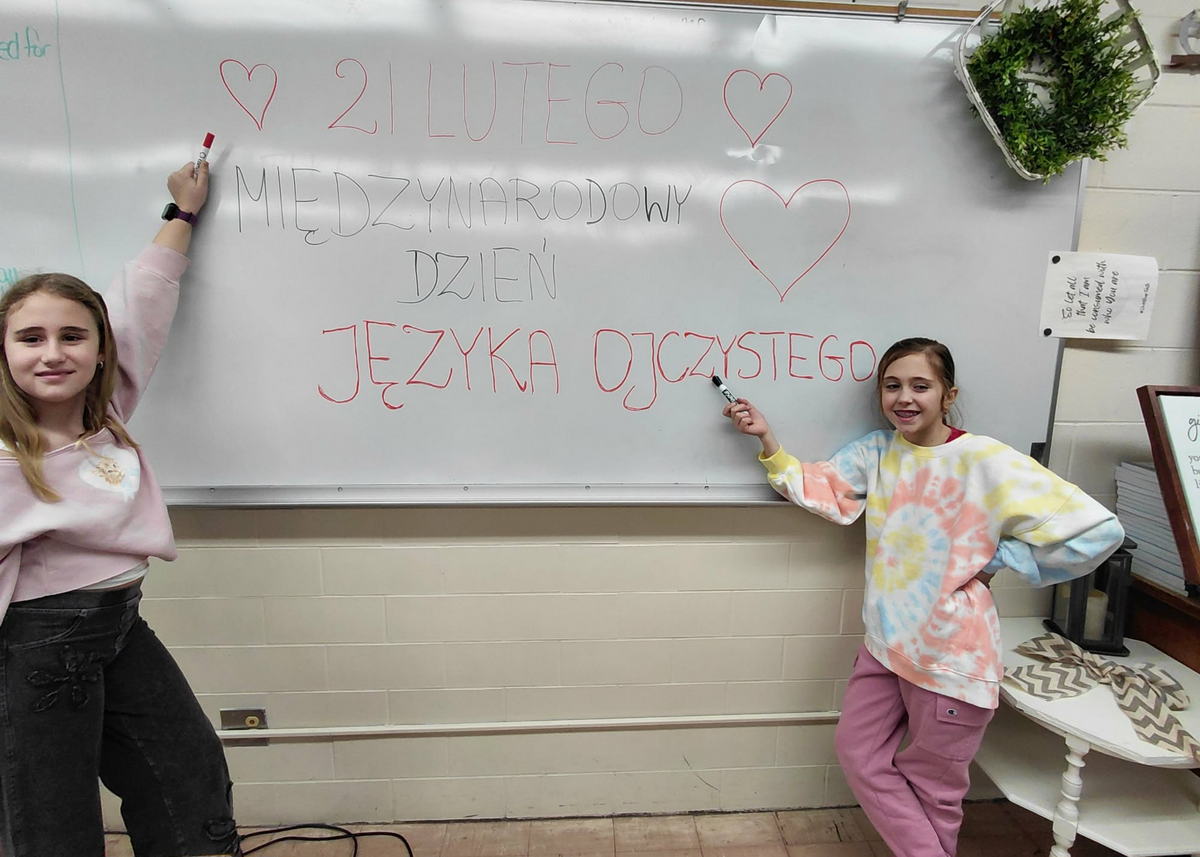 ed for
21 LUTEGO
MIĘDZYNARODOWY
DZIEŃ
JĘZYKA OJCZYSTEGO
So let all
that I am
be consumed with
who You are